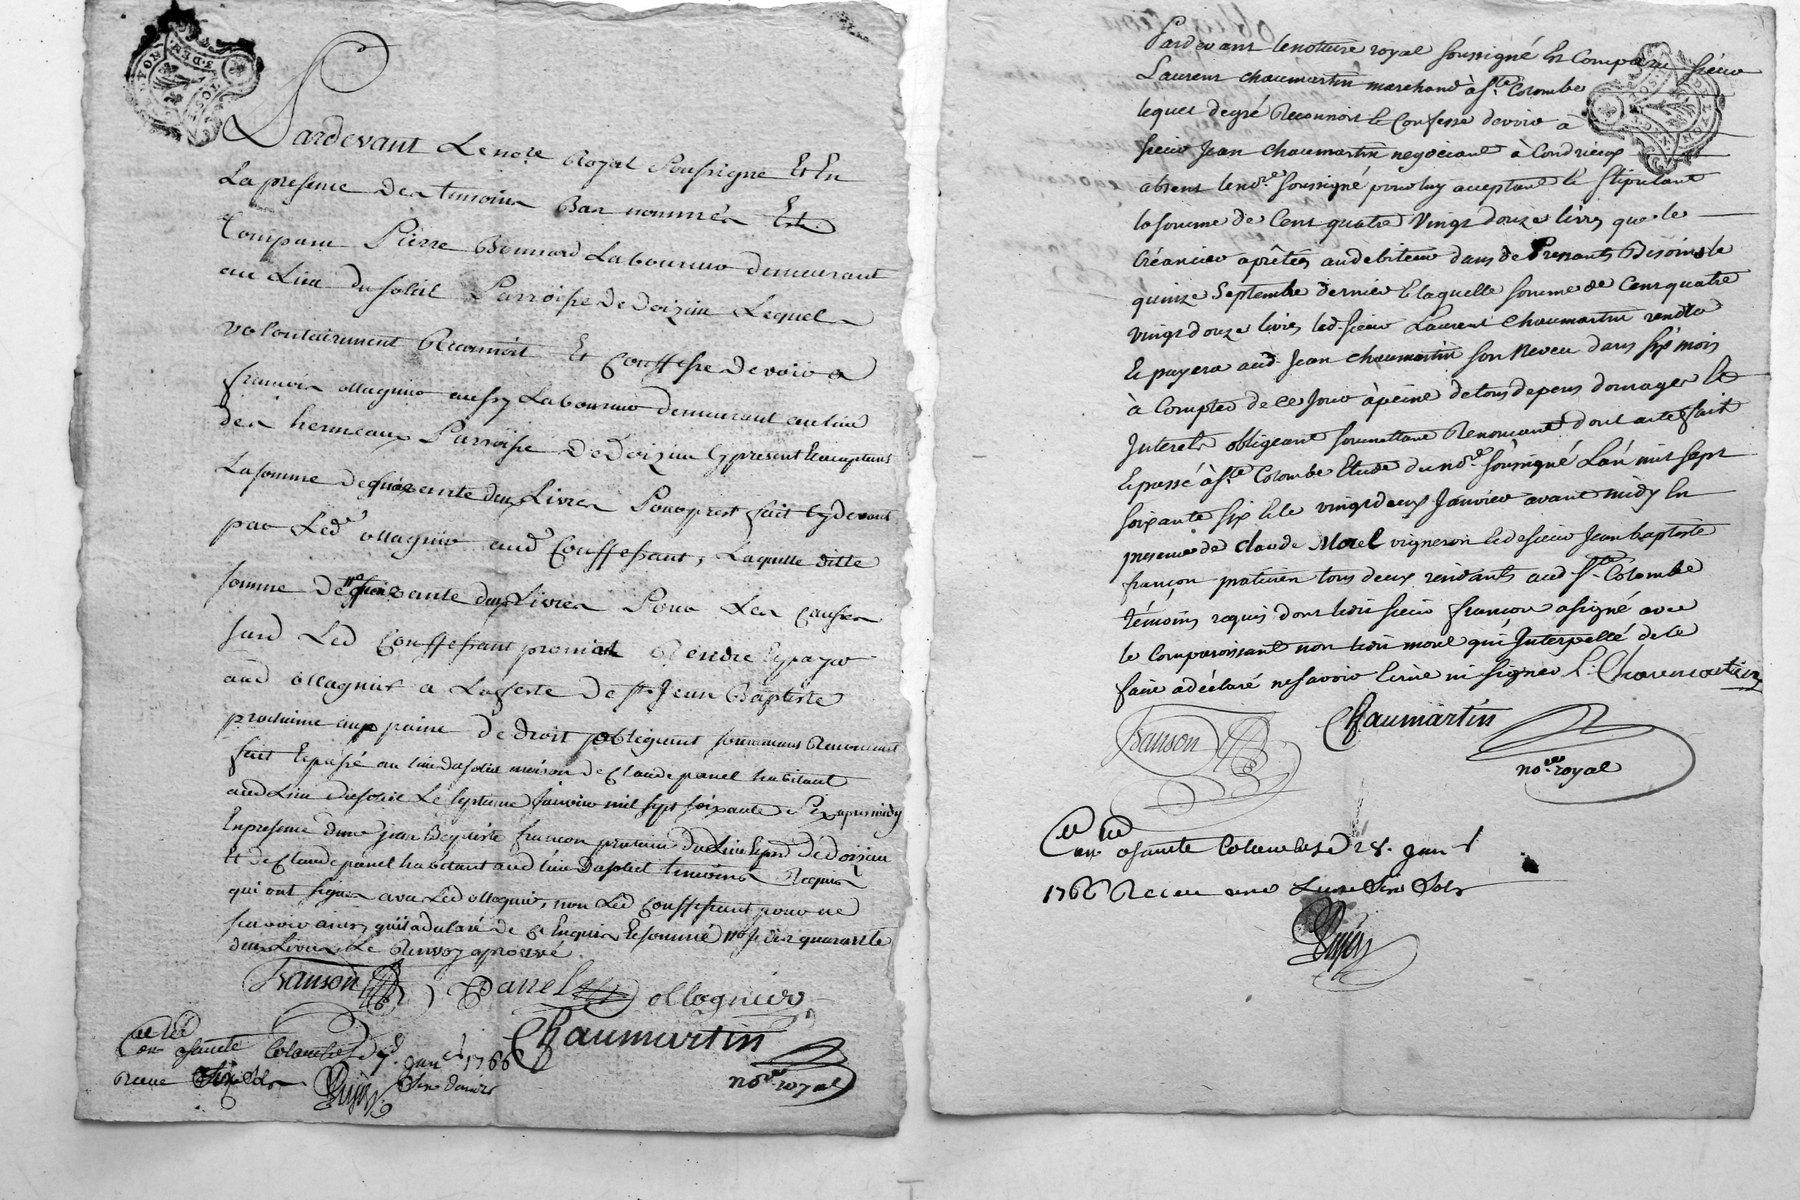 Pardevant Le nore Royal Soussigné Et En
La presence des temoins Bas nommés Est
Comparu Pierre Bonnard Laboureur demeurant
au Lieu du soleil Parroisse de doizieu Lequel
volontairement Reconnoit Et Confesse devoir a
françois ollagnier aussy Laboureur demeurant au lieu
des hermeaux Parroisse de Doizieu Cy present Eacceptant
La somme de quarente deux Livres Pour prest fait Cy devant
par Led. ollagnier aud. Confessant, Laquelle ditte
somme de quarente deux Livres Pour Les Causes
susd Led Confessant promet Rendre Et payer
aud ollagnier a La feste de st. Jean Baptiste
prochaine aux paine de droit obligeant soumettant Renoncant
fait Et passé au lieu du soleil maison de Claude panel habitant
aud Lieu du soleil Le septieme Janvier mil sept soixante Six apres midy
En presence de jean Baptiste françon praticien du Lieu de Doizieu
Et de Claude panel habitant aud lieu du soleil temoins Requis
qui ont signés avec Led ollagnier, non Led Confessant pour ne
scavoir ainsy qu'il a declaré de Ce Enquis Et sommé quarante
deux Livres, Le Renvoy aprouvé.
françon Panel ollagnier
Chaumartin
no.re royal
Con.lé a sainte Colombe Le 7. janer 1766
Receu Six Sols Six deniers
Pardevant le notaire royal soussigné Est Comparu sieur
Laurent chaumartin marchand à ste. Colombe
lequel de gré Reconnoit Et Confesse devoir à
sieur Jean chaumartin negociant à Condrieux
absent le no.re soussigné pour luy acceptant Et stipulant
la somme de Cent quatre vingt douze livres que le
Créancier a prêtées au debiteur dans de Pressants Besoins le
quinze Septembre dernier Et laquelle somme de Cent quatre
vingt douze livres led. sieur Laurent Chaumartin rendra
Et payera aud. Jean chaumartin son Neveu dans six mois
à Compter de ce Jour à peine de tous depens domages Et
Interets obligeant soumettant Renoncant dont acte fait
Et passé à ste. Colombe Etude du no.re soussigné L'an mil sept
soixante six Et le vingt deux Janvier avant midy En
presence de Claude Morel vigneron Et de sieur Jean baptiste
françon praticien tous deux residants aud ste. Colombe
témoins requis dont led. sieur françon a signé avec
le comparoissant non led. morel qui Interpellé de le
faire a déclaré ne savoir Ecrire ni signer L. Chaumartin
françon Chaumartin
no.re royal
Con.lé a sainte Colombe Le 28. janr
1766 Receu une Livre Six Sols